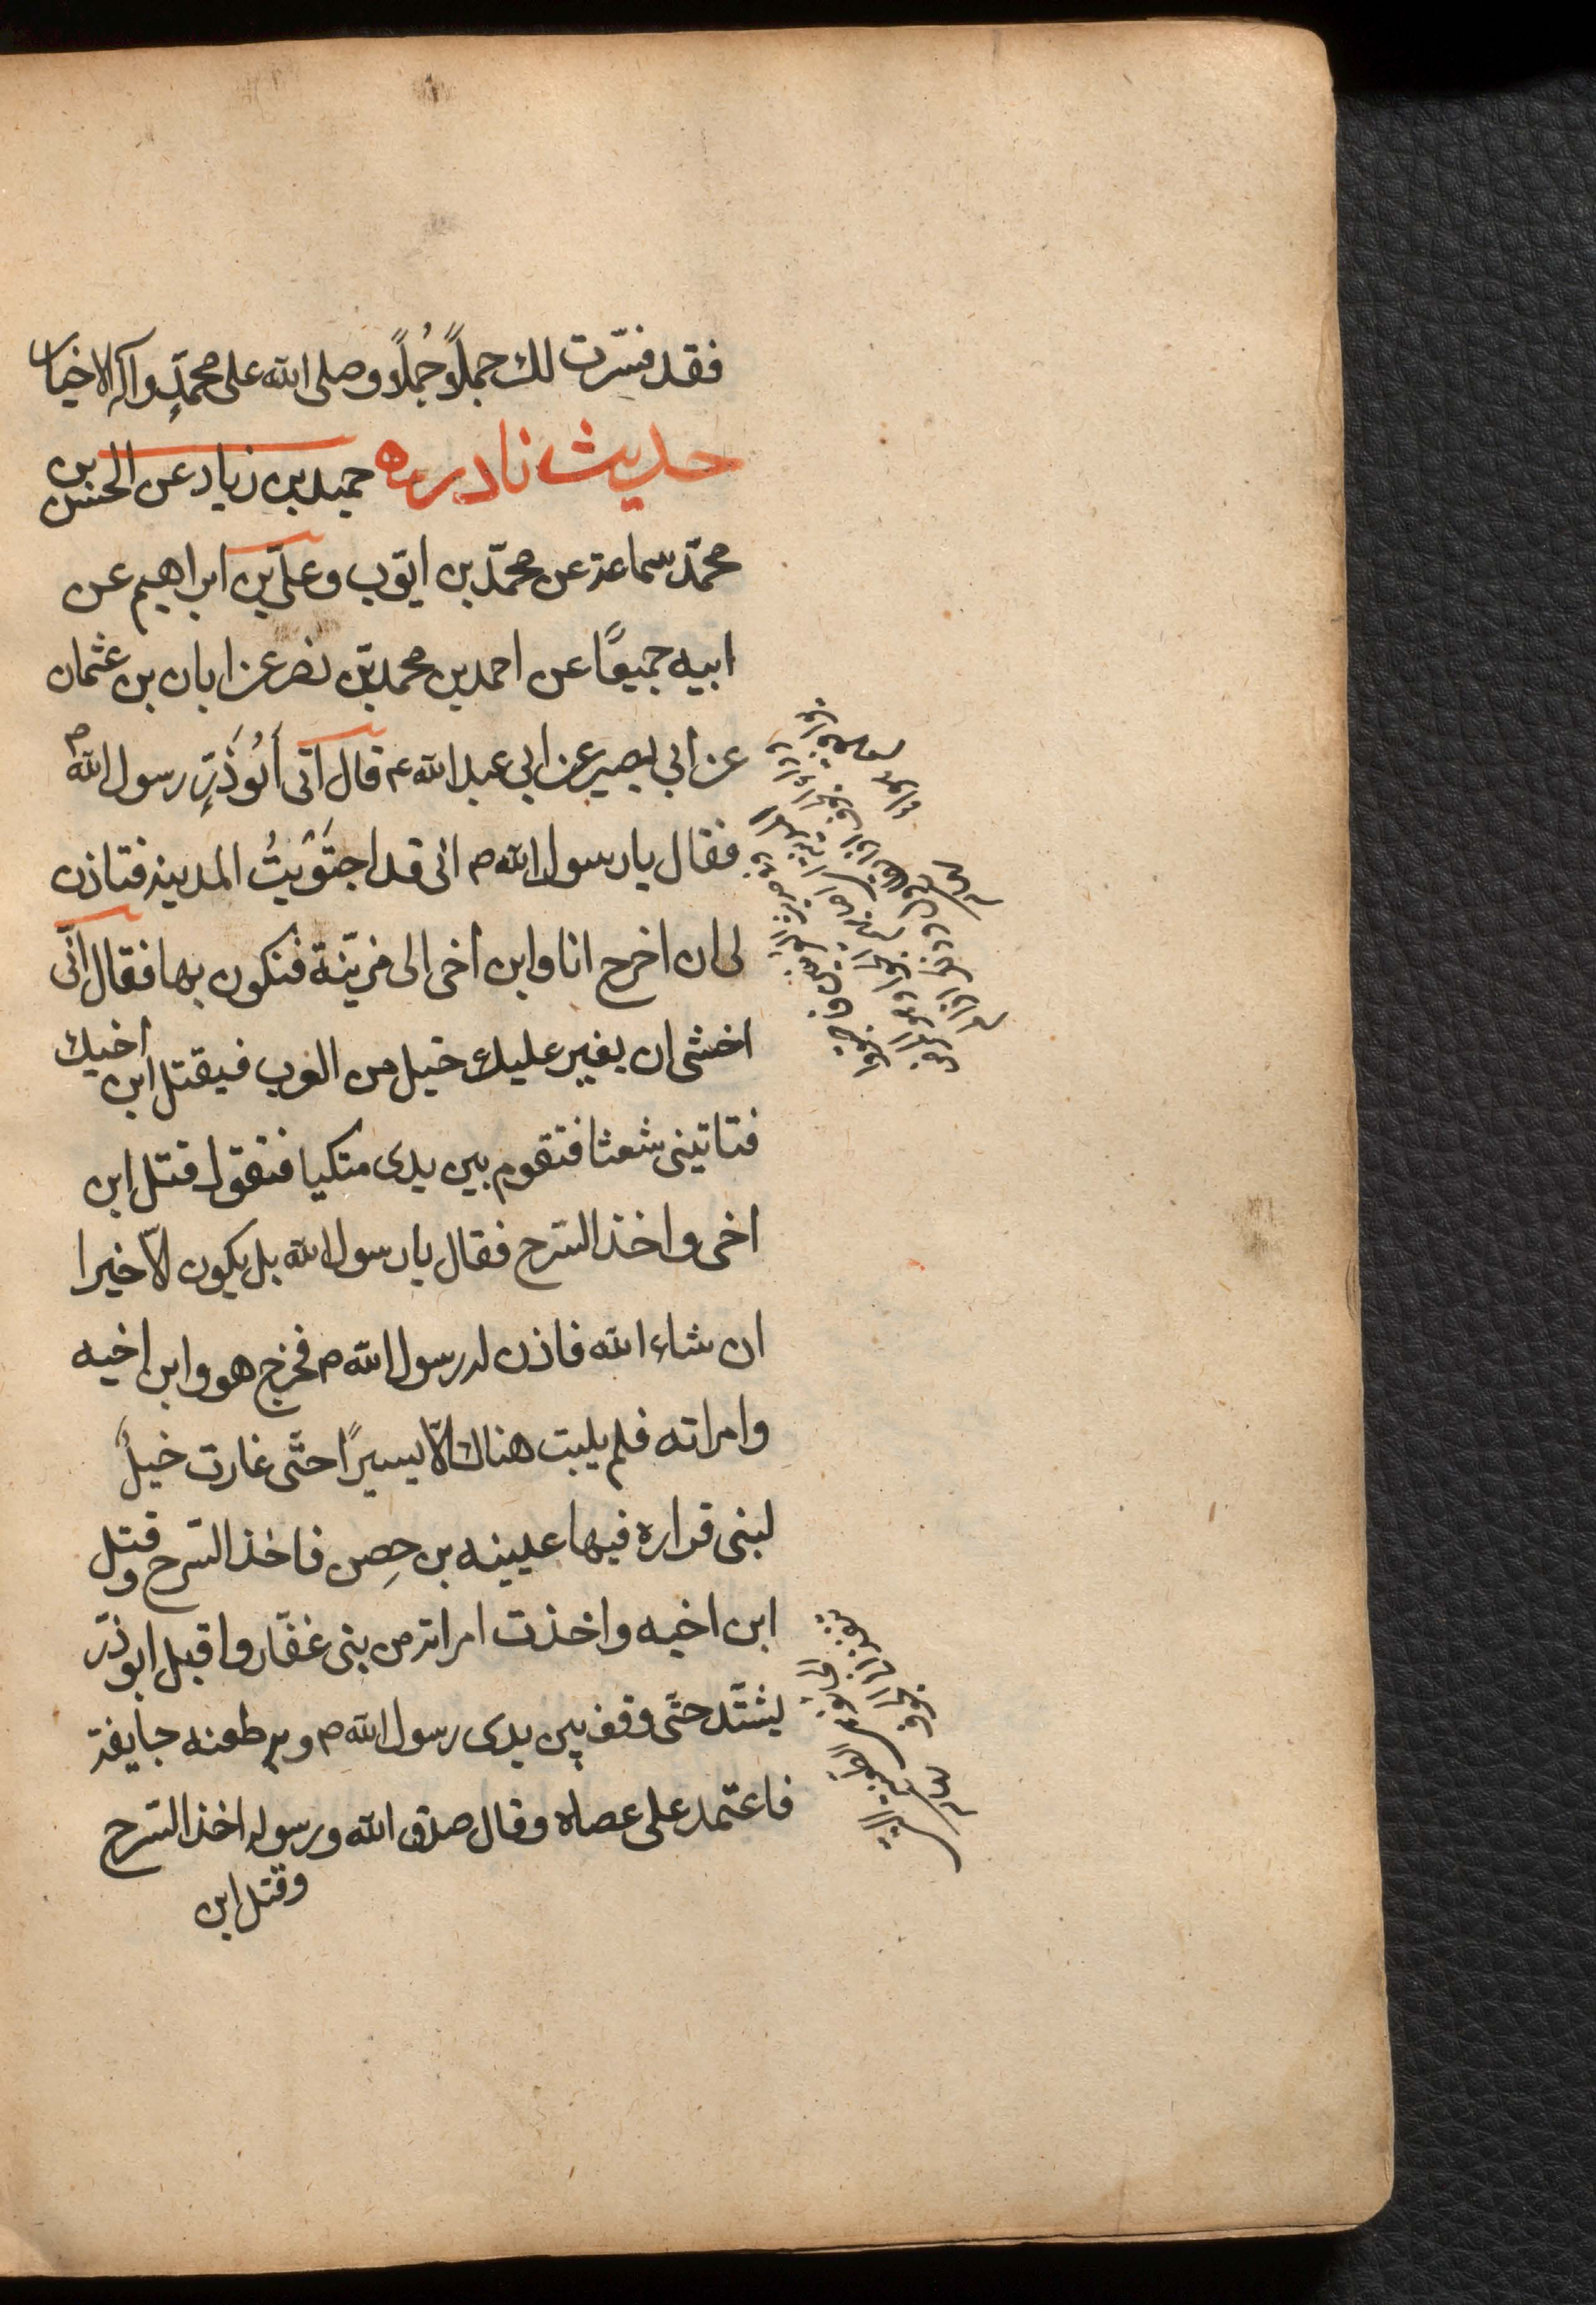 فقد فسّرت لك جملاً جُملاً وصلى الله على محمّدٍ وآله الاخيار
حديث نادره حميد بن زياد عن الحسن بن
محمّد سماعة عن محمّد بن ايّوب وعلىّ بن ابراهيم عن
ابيه جميعًا عن احمد بن محمد بن نصر عن ابان بن عثمان
عن ابي بصير عن ابي عبد الله ع قال اتى أبُو ذَرٍّ رسول الله ص
فقال يا رسول الله ص انى قد اجتَوَيتُ المدينة فتاذن
لى ان اخرج انا وابن اخى الى مزينّة فنكون بها فقال انّى
اخشى ان يغير عليك خيل من العرب فيقتل ابن أخيك
فتاتينى شعثا فتقوم بين يدى متكيا فتقول قتل ابن
اخى واخذ السّرح فقال يا رسول الله بل يكون الاّ خيرا
ان شاء الله فاذن له رسول الله ص فخرج هو وابن اخيه
وامراته فلم يلبث هناك الاّ يسيرًا حتّى غارت خيلٌ
لبنى قراره فيها عيينه بن حِصن فاخذ السّرح وقتل
ابن اخيه واخذت امراته من بنى غفّار واقبل ابو ذرّ
يشتّد حتّى وقف بين يدى رسول الله ص وبه طعنه جايفة
فاعتمد على عصاه وقال صدق الله ورسوله اخذ السّرح
وقتل ابن